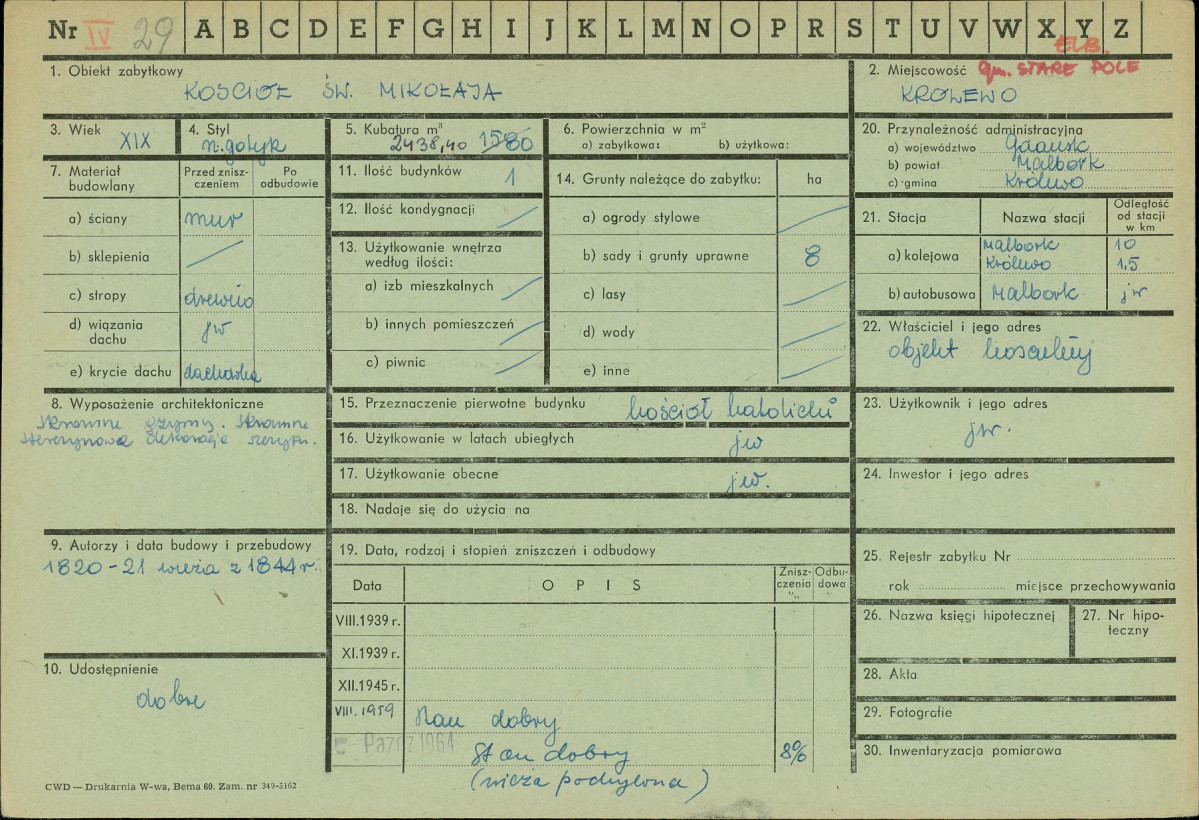 Nr IV 29 A B C D E F G H I J K L M N O P R S T U V W X Y Z
ELB.
1. Obiekt zabytkowy
KOŚCIOŁ ŚW. MIKOŁAJA
2. Miejscowość gm. STARE POLE
KROLEWO
3. Wiek XIX
4. Styl
n. gotyk
5. Kubatura m³
2438,40 1580
6. Powierzchnia w m²
a) zabytkowa: b) użytkowa:
7. Materiał budowlany
Przed znisz-
czeniem
Po
odbudowie
a) ściany mur
b) sklepienia /
c) stropy drewno
d) wiązania
dachu jw
e) krycie dachu dachówka
8. Wyposażenie architektoniczne
Skromne gzymsy. Skromne
dekoracje
9. Autorzy i data budowy i przebudowy
1820-21 wieża z 1844 r.
10. Udostępnienie
dobre
11. Ilość budynków 1
12. Ilość kondygnacji /
13. Użytkowanie wnętrza
według ilości:
a) izb mieszkalnych /
b) innych pomieszczeń /
c) piwnic /
14. Grunty należące do zabytku: ha
a) ogrody stylowe /
b) sady i grunty uprawne 8
c) lasy /
d) wody /
e) inne /
15. Przeznaczenie pierwotne budynku kościół katolicki
16. Użytkowanie w latach ubiegłych jw
17. Użytkowanie obecne jw.
18. Nadaje się do użycia na
19. Data, rodzaj i stopień zniszczeń i odbudowy
Data OPIS
Znisz-
czenia
"/"
Odbu-
dowa
"
VIII.1939 r.
XI.1939 r.
XII.1945 r.
VIII.1959 Stan dobry
Paźdz 1964 Stan dobry 8%
(wieża podchylona)
20. Przynależność administracyjna
a) województwo Gdańsk
b) powiat Malbork
c) gmina Królewo
21. Stacja Nazwa stacji
Odległość
od stacji
w km
a) kolejowa Malbork 10
Królewo 1,5
b) autobusowa Malbork jw
22. Właściciel i jego adres
objekt kościelny
23. Użytkownik i jego adres
jw.
24. Inwestor i jego adres
25. Rejestr zabytku Nr
rok miejsce przechowywania
26. Nazwa księgi hipotecznej
27. Nr hipo-
teczny
28. Akta
29. Fotografie
30. Inwentaryzacja pomiarowa
CWD — Drukarnia W-wa, Bema 60. Zam. nr 349-5162